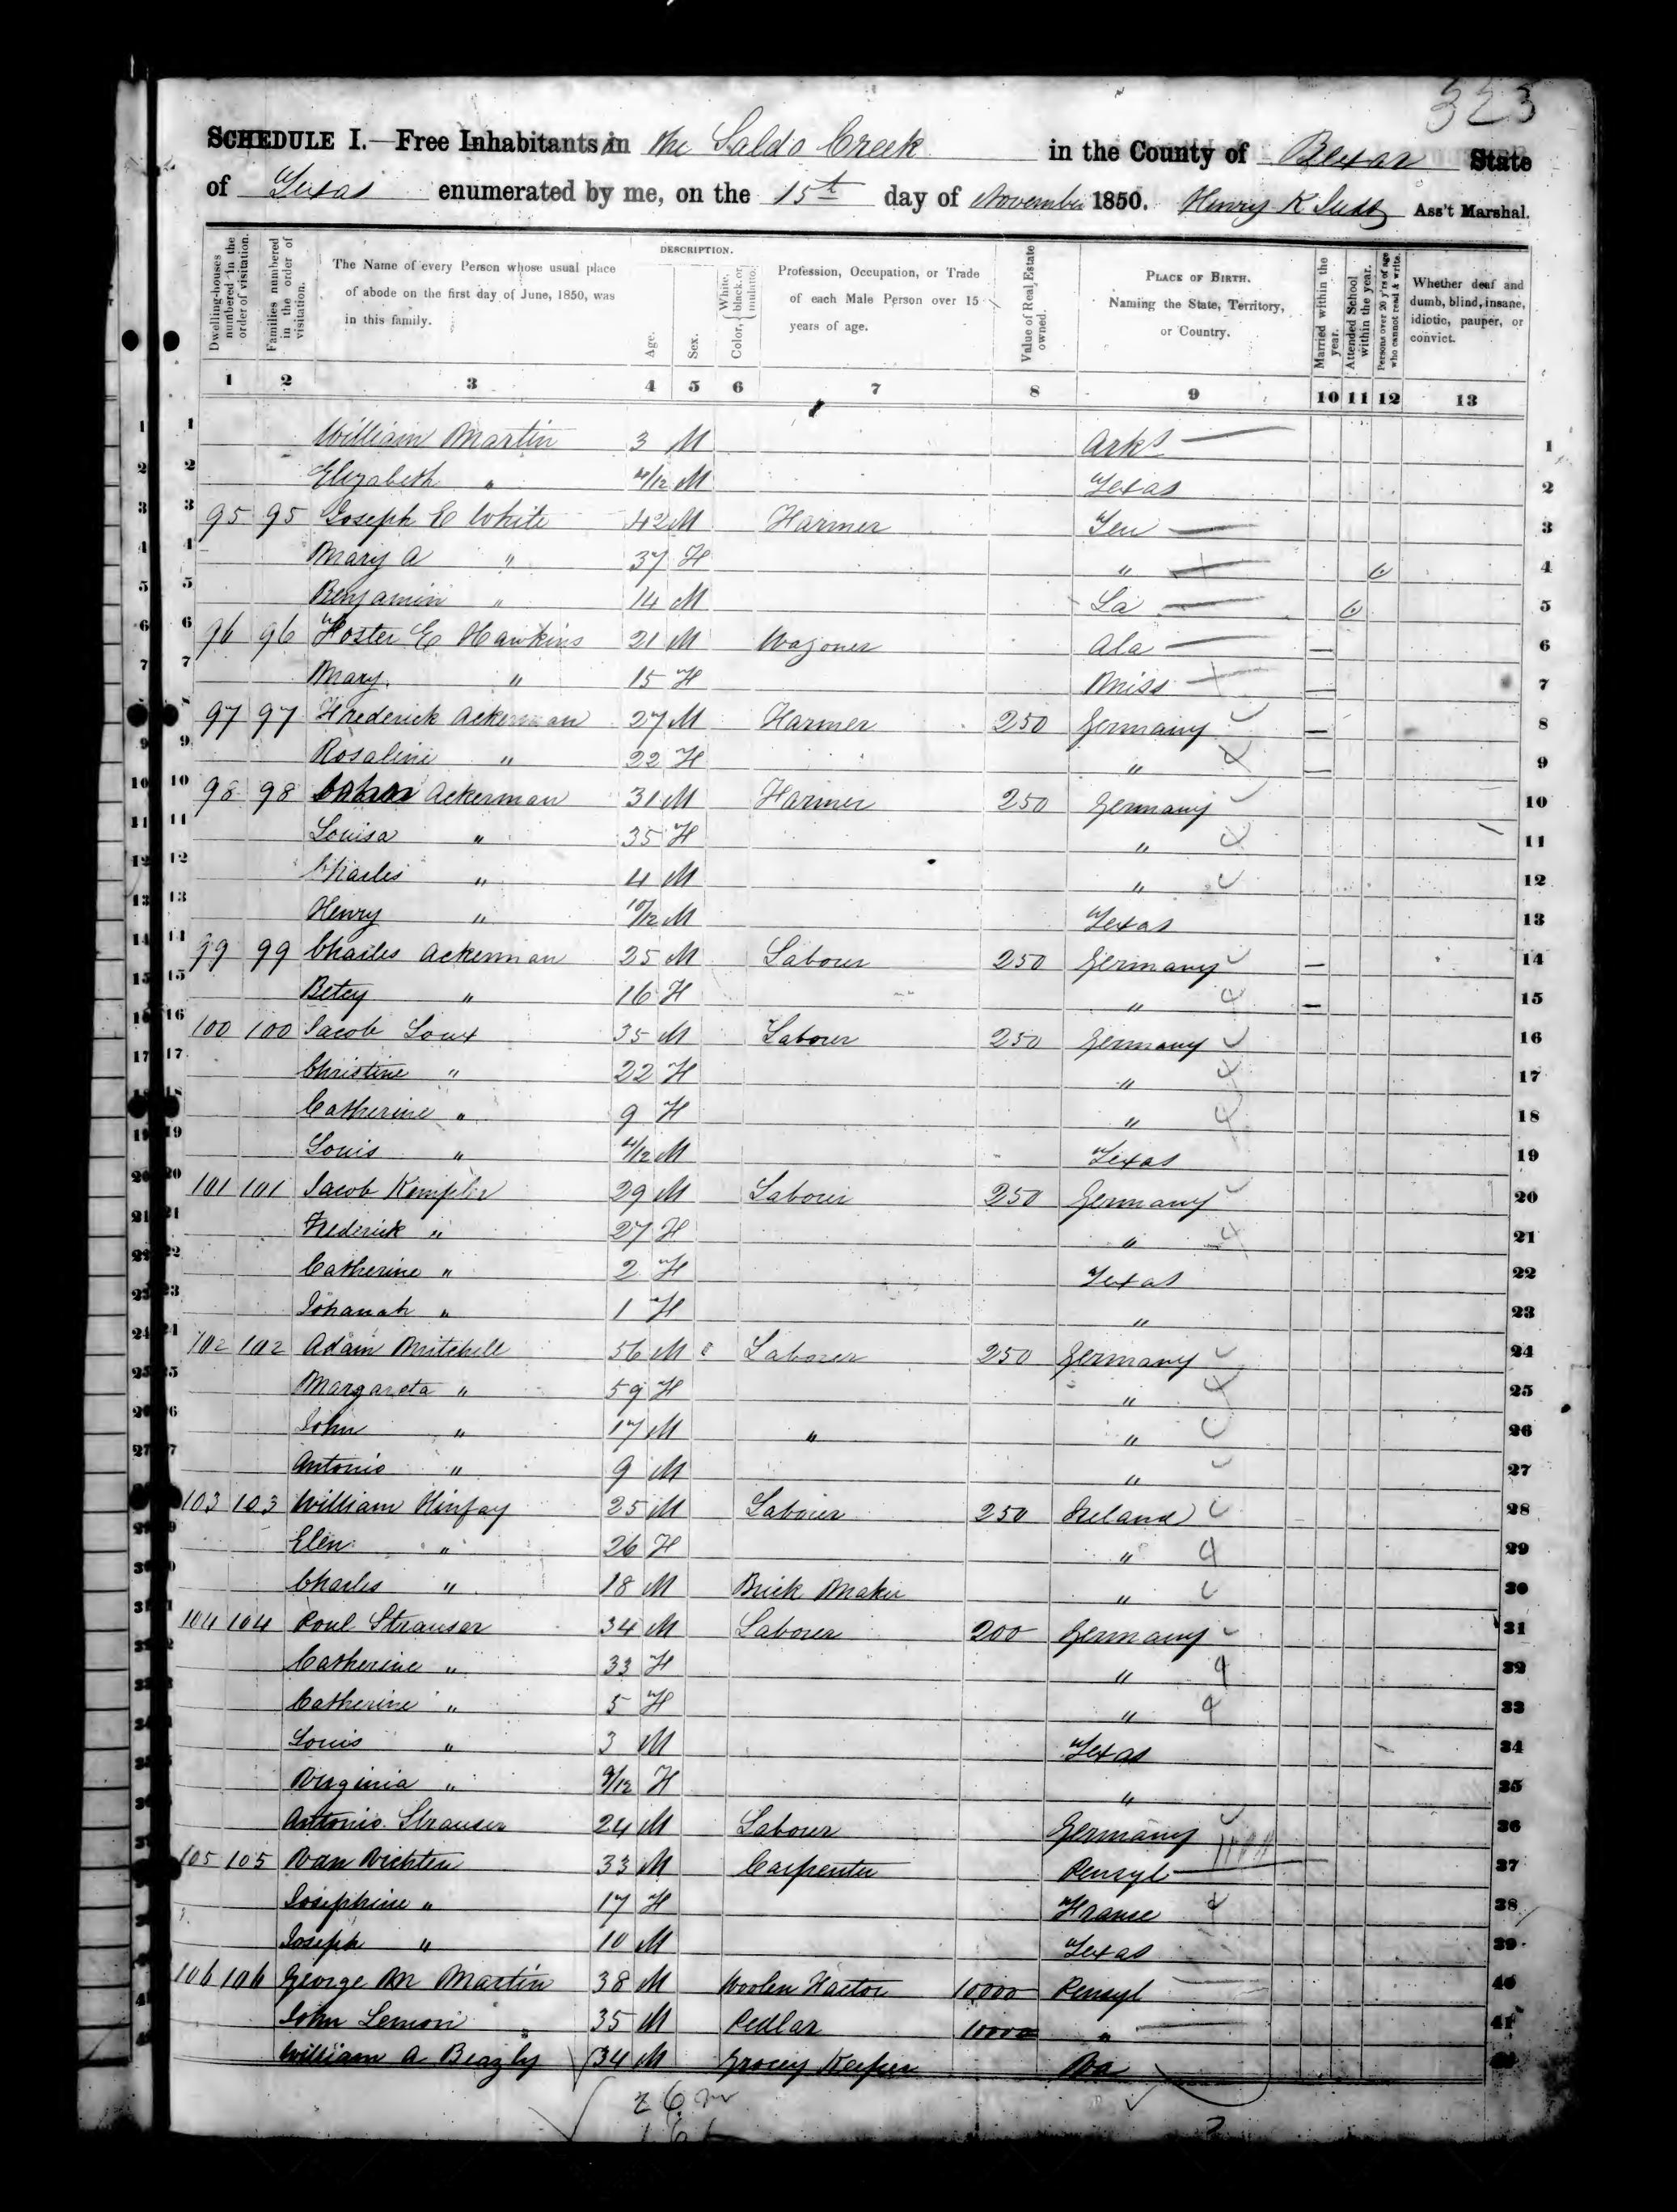 323
SCHEDULE I.—Free Inhabitants in the Salado Creek in the County of Bexar State
of Texas enumerated by me, on the 15th day of November 1850. Henry K Judd Ass't Marshal.
Dwelling-houses numbered in the order of visitation.
Families numbered in the order of visitation.
The Name of every Person whose usual place of abode on the first day of June, 1850, was in this family.
DESCRIPTION.
Age.
Sex.
Color, { White, black, or mulatto.
Profession, Occupation, or Trade of each Male Person over 15 years of age.
Value of Real Estate owned.
PLACE OF BIRTH. Naming the State, Territory, or Country.
Married within the year.
Attended School within the year.
Persons over 20 y'rs of age who cannot read & write.
Whether deaf and dumb, blind, insane, idiotic, pauper, or convict.
1 2 3 4 5 6 7 8 9 10 11 12 13
1 William Martin 3 M Arks 1
2 Elizabeth " 4/12 M Texas 2
3 95 95 Joseph C White 42 M Farmer Ten 3
4 Mary A " 37 F " 4
5 Benjamin " 14 M La 5
6 96 96 Foster E Hawkins 21 M Wagoner Ala 6
7 Mary " 15 F Miss 7
8 97 97 Frederick Ackerman 27 M Farmer 250 Germany 8
9 Rosaline " 22 F " 9
10 98 98 Ackerman 31 M Farmer 250 Germany 10
11 Louisa " 35 F " 11
12 Charles " 4 M " 12
13 Henry " 10/12 M Texas 13
14 99 99 Charles Ackerman 25 M Labour 250 Germany 14
15 Betey " 16 F " 15
16 100 100 Jacob Loux 35 M Laborer 250 Germany 16
17 Christine " 22 F " 17
18 Catherine " 9 F " 18
19 Louis " 4/12 M Texas 19
20 101 101 Jacob Kempler 29 M Laborer 250 Germany 20
21 Frederick " 27 F " 21
22 Catherine " 2 F Texas 22
23 Johanah " 1 F " 23
24 102 102 Adam Mritchell 56 M Laborer 250 Germany 24
25 Margareta " 59 F " 25
26 John " 17 M " " 26
27 Antonio " 9 M " 27
28 103 103 William Hinfay 25 M Laborer 250 Ireland 28
29 Elen " 26 F " 29
30 Charles " 18 M Brick Maker " 30
31 104 104 Poul Strauser 34 M Laborer 200 Germany 31
32 Catherine " 33 F " 32
33 Catherine " 5 F " 33
34 Louis " 3 M Texas 34
35 Virginia " 9/12 F " 35
36 Antonio Strauser 24 M Laborer Germany 36
37 105 105 Van Vichten 33 M Carpenter Pensyl 37
38 Josephine " 17 F France 38
39 Joseph " 10 M Texas 39
40 106 106 George M Martin 38 M Woolen Factor 10000 Pensyl 40
41 John Lemon 35 M Pedlar 10000 " 41
William A Beazly 34 M Grocey Keeper Va